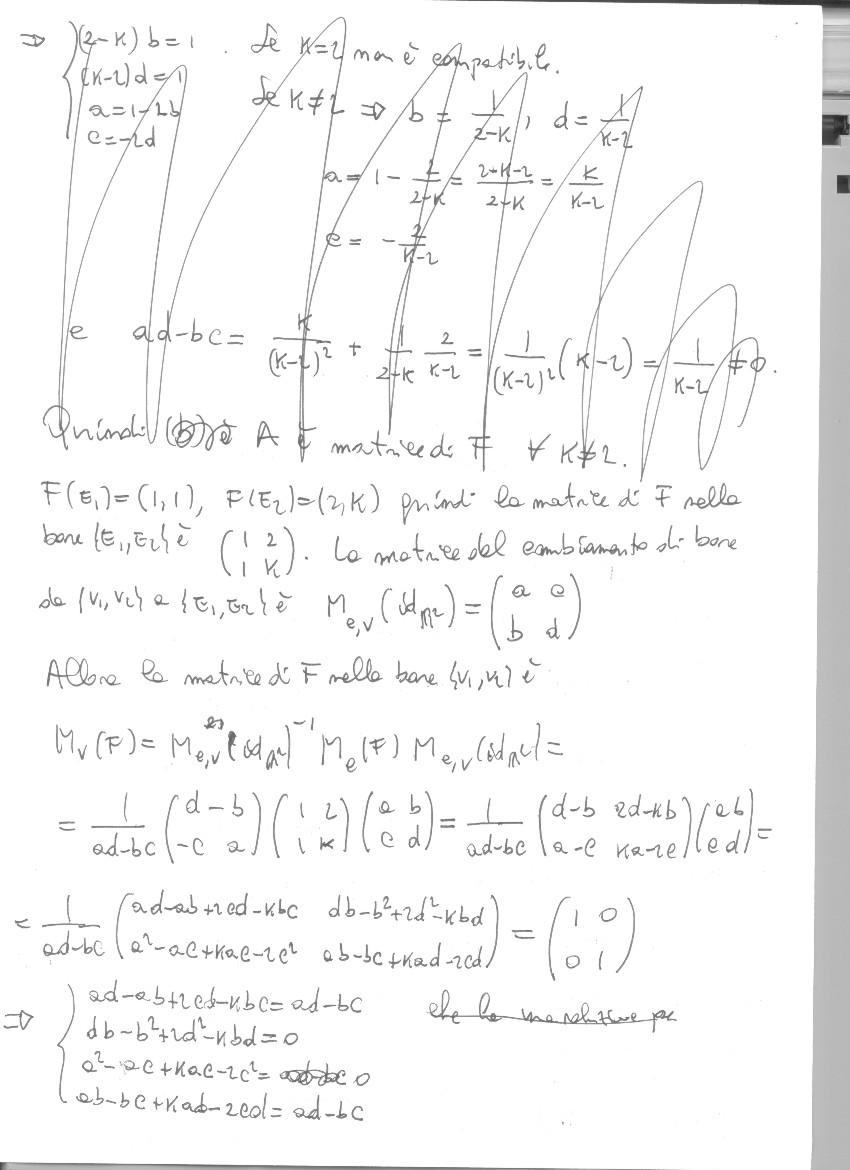 ⇒ { (2-K) b = 1 . Se K=2 non è compatibile.
(K-2) d = 1
Se K≠2 ⇒ b = 1/(2-K), d = 1/(K-2)
a = 1-2b
c = -2d
a = 1 - 2/(2-K) = (2-K-2)/(2-K) = K/(K-2)
c = - 2/(K-2)
e ad-bc = K/(K-2)² + 1/(2-K) 2/(K-2) = 1/(K-2)² (K-2) = 1/(K-2) ≠ 0.
Quindi (b) è A è matrice di F ∀ K≠2.
F(E₁)=(1,1), F(E₂)=(2,K) quindi la matrice di F nella
base {E₁,E₂} è (1 2 / 1 K). La matrice del cambiamento di base
da {v₁,v₂} a {E₁,E₂} è M_{e,v}(id_{ℝ²}) = (a c / b d)
Allora la matrice di F nella base {v₁,v₂} è
M_v(F) = M_{e,v}(id_{ℝ²})⁻¹ M_e(F) M_{e,v}(id_{ℝ²}) =
= 1/(ad-bc) (d -b / -c a) (1 2 / 1 K) (a b / c d) = 1/(ad-bc) (d-b 2d-Kb / a-c Ka-2c) (a b / c d) =
= 1/(ad-bc) (ad-ab+2cd-Kbc db-b²+2d²-Kbd / a²-ac+Kac-2c² ab-bc+Kad-2cd) = (1 0 / 0 1)
⇒ { ad-ab+2cd-Kbc = ad-bc che ha
db-b²+2d²-Kbd = 0
a²-ac+Kac-2c² = 0
ab-bc+Kad-2cd = ad-bc